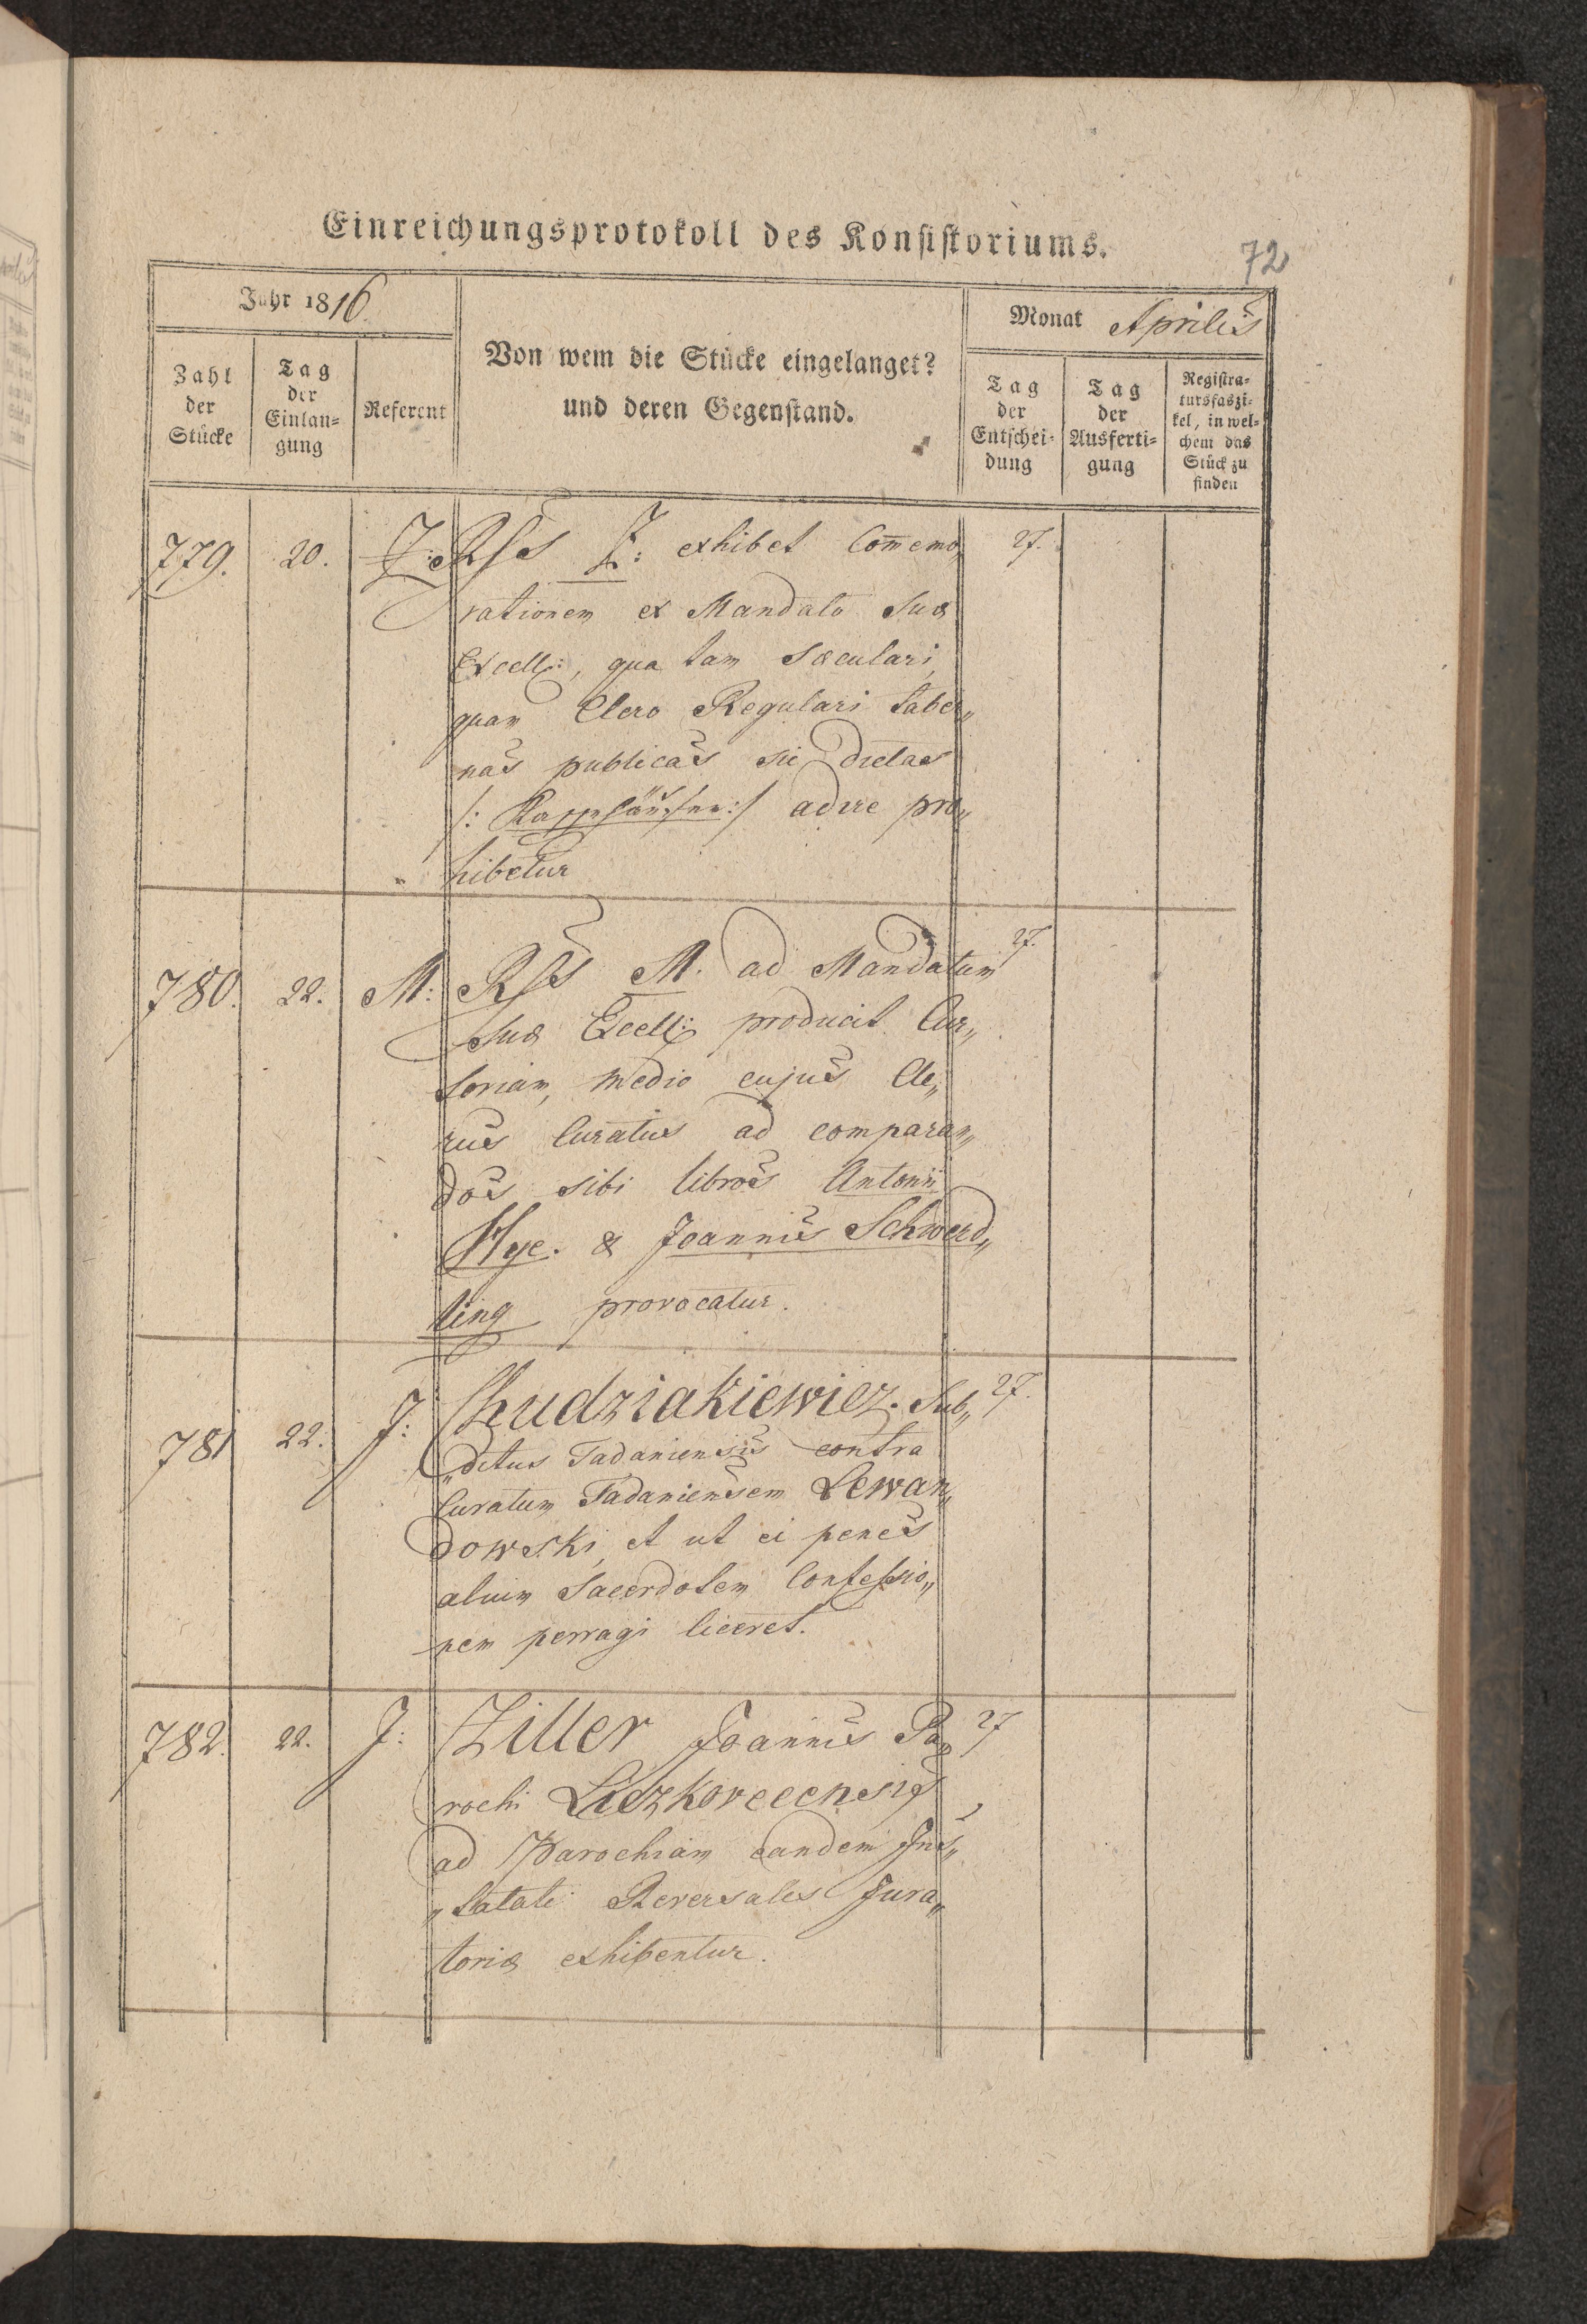 Einreichungsprotokoll des Konsistoriums.
72
Jahr 1816.
Monat Aprilis
Von wem die Stücke eingelanget?
und deren Gegenstand.
Zahl
der
Stücke
Tag
der
Einlan=
gung
Referent
Tag
der
Entschei=
dung
Tag
der
Ausferti=
gung
Registra=
tursfaszi=
kel, in wel=
chem das
Stück zu
finden
779. 20. Rss exhibet Com̄emo„ 27.
rationem ex Mandato Suæ
Excell:, qua tam Sæculari,
quam Clero Regulari taber„
nas publicas sic dictas
adire pro„
hibetur
780. 22. M: Rss M. ad Mandatum 27.
Suæ Excell: producit Cur„
soriam, medio cujus Cle„
rus Curatus ad comparan„
dos sibi libros Antonii
Hye. & Joannis Schwerd„
ling provocatur.
781 22. J: Chudziakiewicz. Sub„ 27.
„ditus Tadaniensis contra
Curatum Tadaniensem Lewan„
dowski, et ut ei penes
alium Sacerdotem Confessio„
nem perragi liceret.
782. 22. J: Ziller Joannis Pa„ 27
rochi
ad Parochiam eandem Ins„
„tatati Reversales Jura„
toriæ exhibentur.